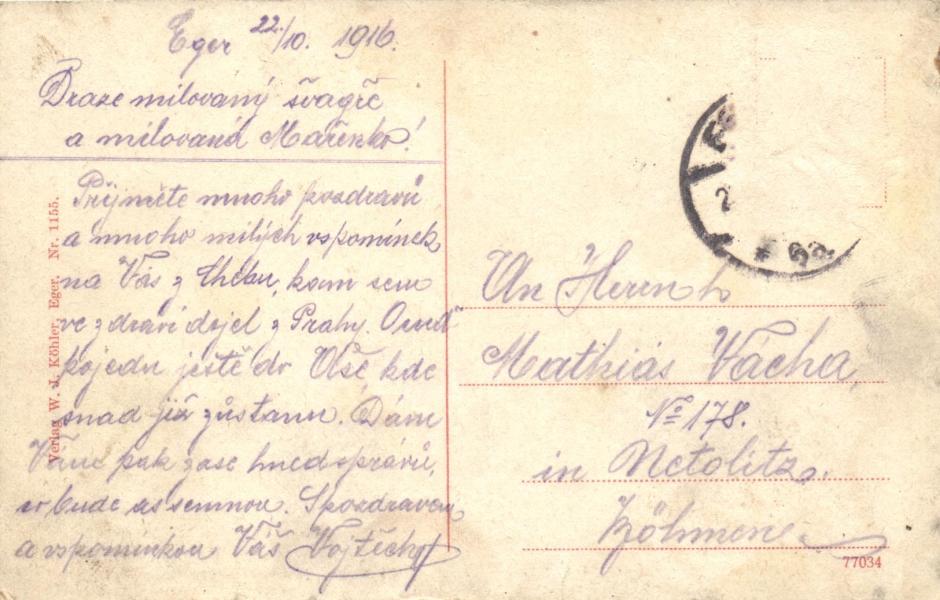 Eger 22/10. 1916.
Draze milovaný švagře
a milovaná Mařenko!
Přijměte mnoho pozdravů
a mnoho milých vspomínek
na Vás z Chebu, kam sem
ve zdraví dojel z Prahy. Onud
pojedu ještě do Aše, kde
snad již zůstanu. Dám
Vám pak zase hned zprávu,
co bude as semnou. S pozdravem
a vspomínkou Váš Vojtěch
Verlag W. J. Köhler, Eger. Nr. 1155.
An Herrn
Mathiás Vácha,
No 178.
in Netolitz.
Böhmen
77034